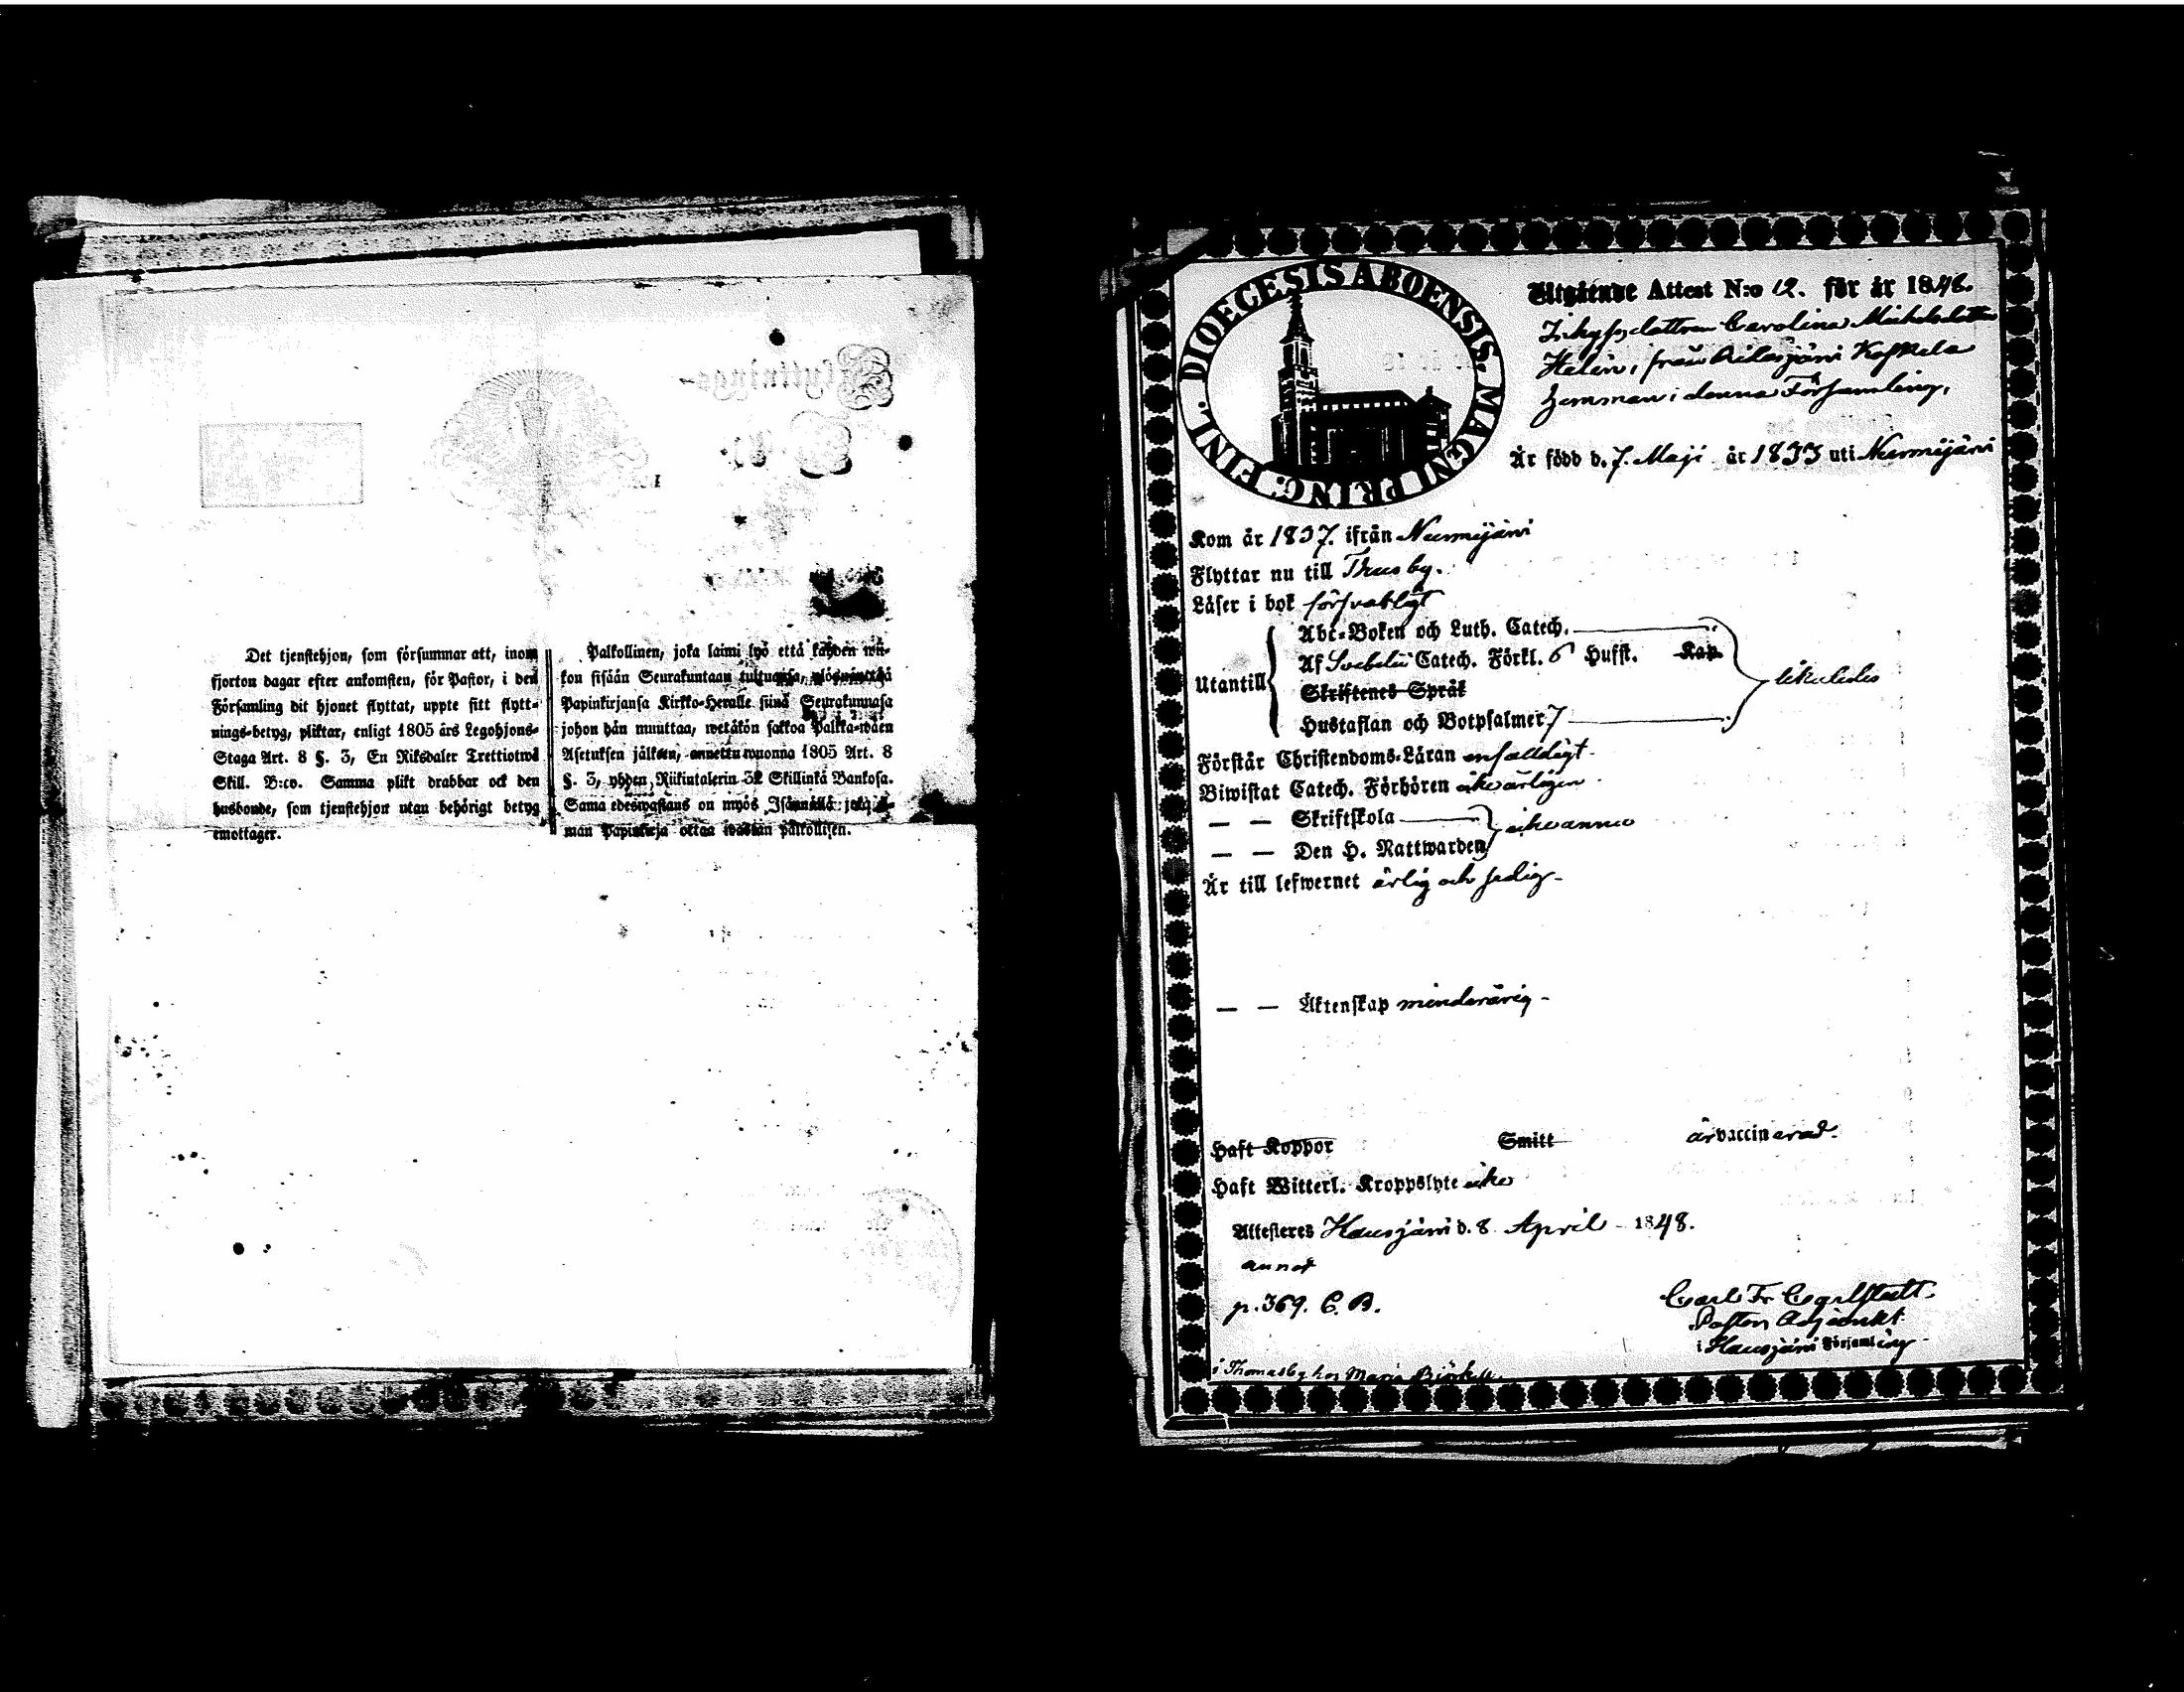 Det tjenstehjon, som försummar att, inom
fjorton dagar efter ankomsten, för Pastor, i den
Församling dit hjonet flyttat, uppte sitt flytt-
nings-betyg, pliktar, enligt 1805 års Legohjons-
Staga Art. 8 §. 3, En Riksdaler Trettiotwå
Skill. B:co. Samma plikt drabbar ock den
husbonde, som tjenstehjon utan behörigt betyg
emottager.
Palkollinen, joka laimi lyö että kahden wii-
kon sisään Seurakuntaan tultuansa,
Papinkirjansa Kirkko-Herralle siinä Seurakunnasa
johon hän muuttaa, wetäkön sakkoa Palkka-wäen
Asetuksen jälken, annettu wuonna 1805 Art. 8
§. 3, yhden Riikintalerin 32 Skillinkä Bankosa.
Sama edeswastaus on myös Isännällä joka il-
man Papinkirja ottaa wastan palkollisen.
DIOECESIS ABOENSIS. MAGNI PRING. FINL.
Utgående Attest N:o 12. för år 1848.
dottren Carolina Michelsdotter
Helin, från Koskela
hemman i denna Församling,
Är född d. 7. Maji år 1833 uti Nurmijärvi
Kom år 1837. ifrån Nurmijärvi
Flyttar nu till Thusby.
Läser i bok försvarligt
Utantill
Abc-Boken och Luth. Catech.
Af Svebelii Catech. Förkl. 6 Hufst. Kap.
likaledes
Skriftenes Språk
Hustaflan och Botpsalmer 7
Förstår Christendoms-Läran enfaldigt.
Biwistat Catech. Förhören årligen.
— — Skriftskola
— — Den H. Nattwarden
Är till lefwernet ärlig och sedig.
— — Äktenskap minderårig.
Haft Koppor Smitt är vaccinerad.
Haft Witterl. Kroppslyte icke
Attesteres Hausjärvi d. 8 April 1848.
p. 369. C. B.
Carl Fr. Carlstedt.
Pastors Adjunkt
i Hausjärvi Församling
i Thomasby hos Maria